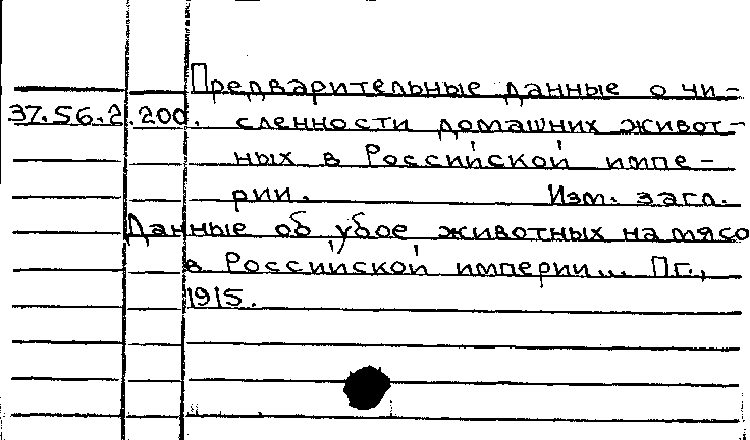 Предварительные данные о чи-
37.56.2.200. сленности домашних живот-
ных в Российской импе-
рии. Изм. загл.
Данные об убое животных на мясо
в Российской империи... Пг.,
1915.